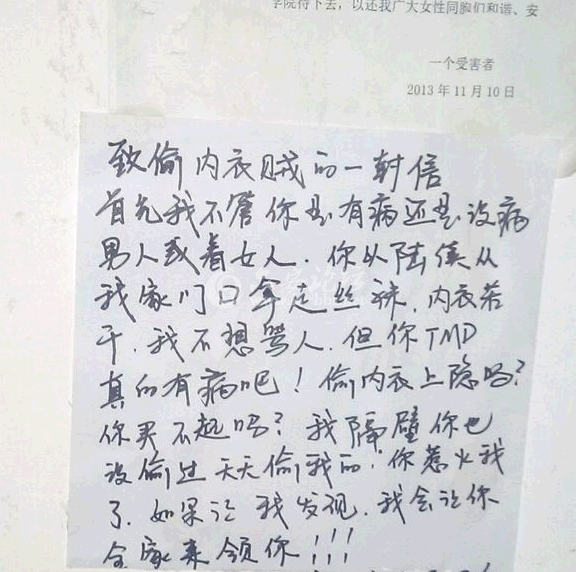 学院待下去，以还我广大女性同胞们和谐、安
一个受害者
2013年11月10日
致偷内衣贼的一封信
首先我不管你是有病还是没病
男人或着女人．你从陆续从
我家门口拿走丝袜．内衣若
干．我不想骂人．但你TMD
真的有病吧！偷内衣上隐吗？
你买不起吗？我隔壁你也
没偷过天天偷我的．你惹火我
了．如果让我发现．我会让你
全家来领你！！！